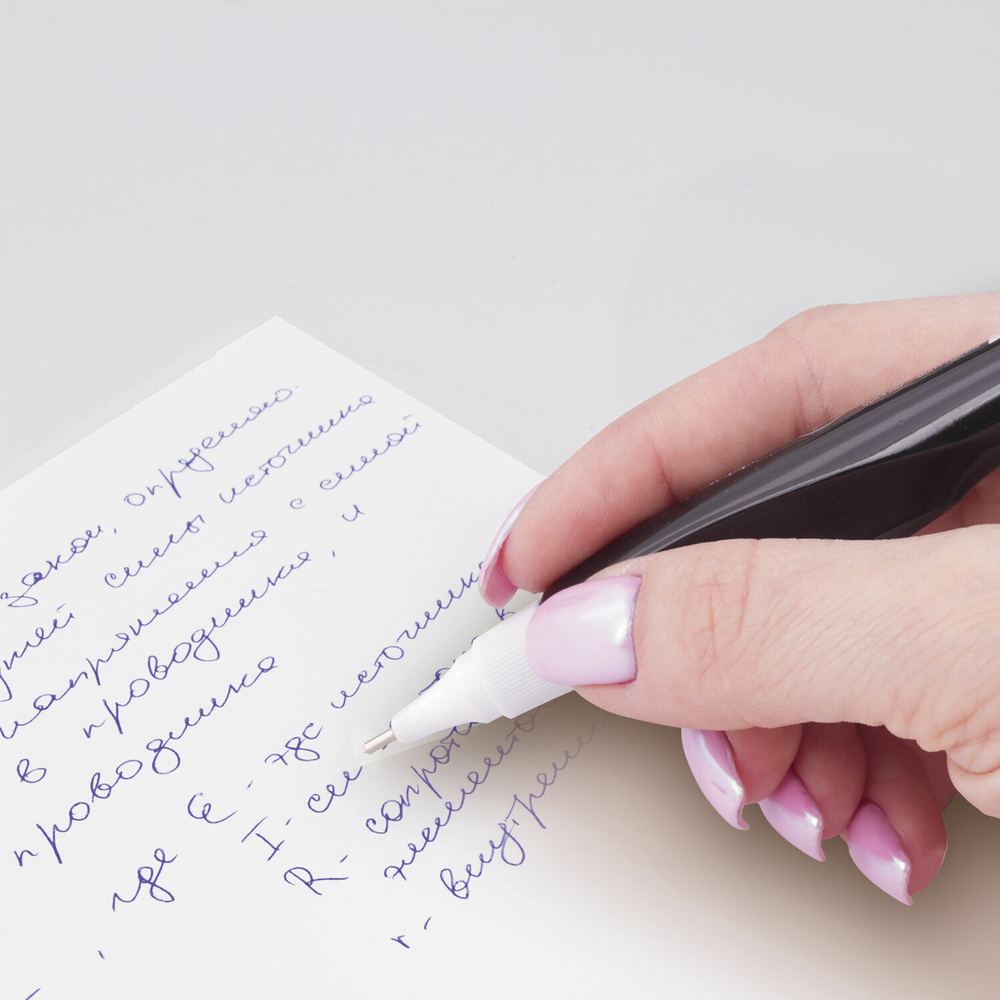 закон, определяю.
силы источника
напряжения с силой
в проводнике, и
проводника
где ε - эдс источника
I - си
R - сопрот
r - внутрен